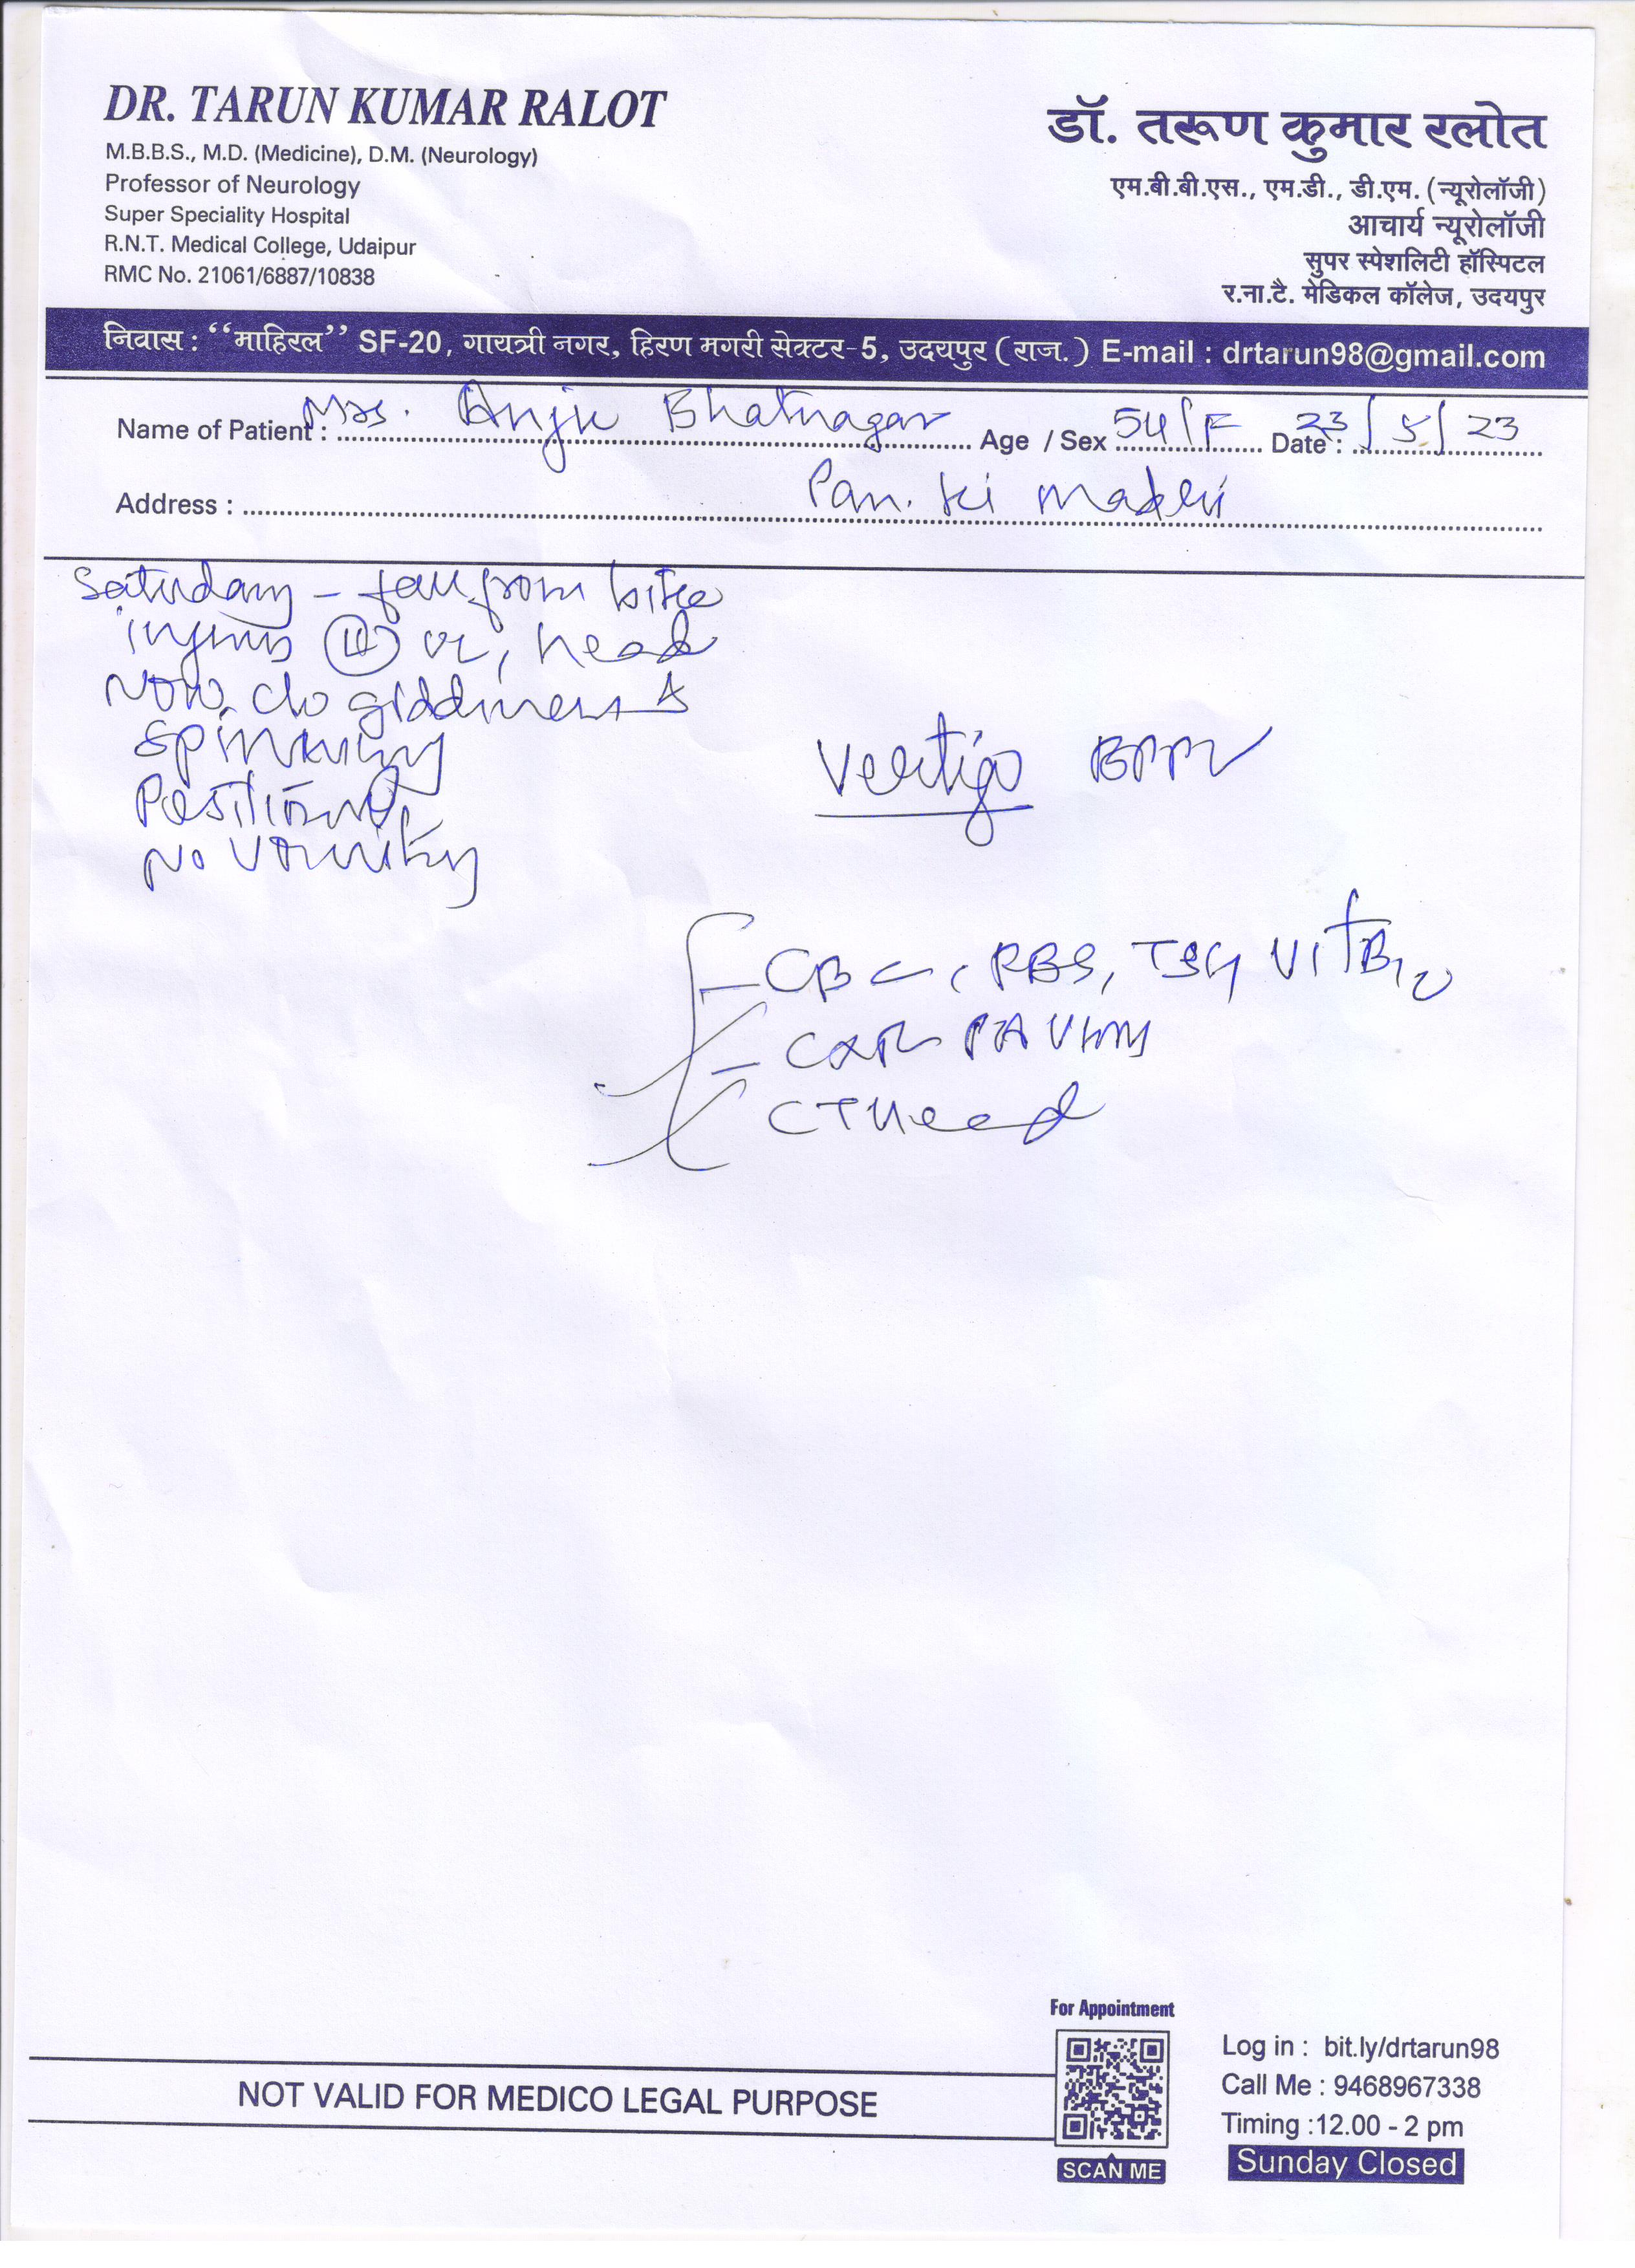 DR. TARUN KUMAR RALOT
M.B.B.S., M.D. (Medicine), D.M. (Neurology)
Professor of Neurology
Super Speciality Hospital
R.N.T. Medical College, Udaipur
RMC No. 21061/6887/10838
डॉ. तरूण कुमार रलोत
एम.बी.बी.एस., एम.डी., डी.एम. (न्यूरोलॉजी)
आचार्य न्यूरोलॉजी
सुपर स्पेशलिटी हॉस्पिटल
र.ना.टै. मेडिकल कॉलेज, उदयपुर
निवास : “माहिरल” SF-20, गायत्री नगर, हिरण मगरी सेक्टर-5, उदयपुर (राज.) E-mail : drtarun98@gmail.com
Name of Patient : Mrs. Anju Bhatnagar Age / Sex 54/F Date : 23/5/23
Address : ki
Saturday - fall from bike
injury head
Now c/o giddiness
Spinning
Positional
No vomiting
Vertigo BPPV
- CBC, RBS, TSH, Vit B12
- CXR PA View
CT Head
For Appointment
SCAN ME
Log in : bit.ly/drtarun98
Call Me : 9468967338
Timing :12.00 - 2 pm
Sunday Closed
NOT VALID FOR MEDICO LEGAL PURPOSE